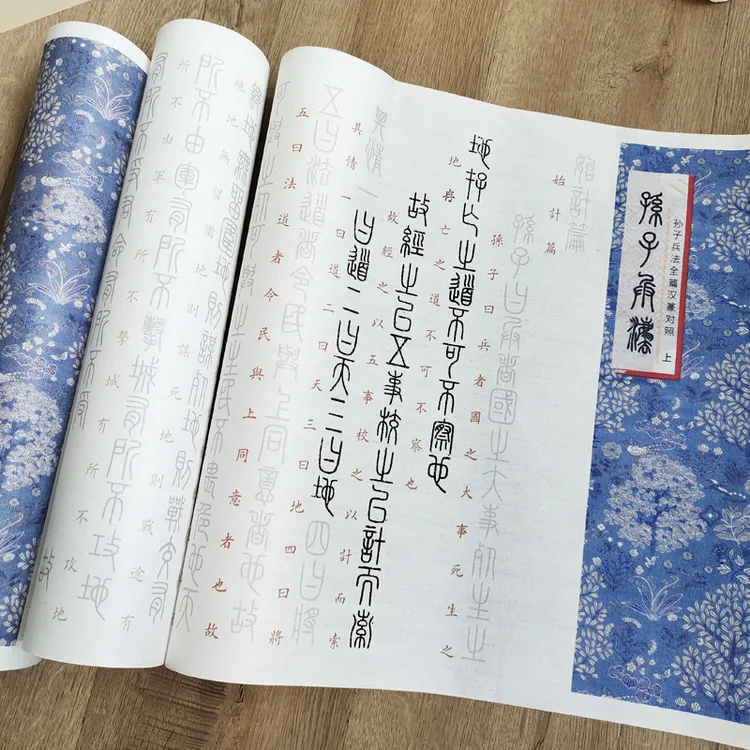 孫子兵法
孙子兵法全篇汉篆对照 上
始計篇
始計篇
孫子曰兵者國之大事死生之
孫子曰兵者國之大事死生之
地存亡之道不可不察也
地存亡之道不可不察也
故經之以五事校之以計而索
故經之以五事校之以計而索
其情一曰道二曰天三曰地四曰將
其情一曰道二曰天三曰地四曰將
五曰法道者令民與上同意者也故
五曰法道者令民與上同意者也故
可與之死可與之生民不畏危也天
地無留圍地則謀死地則戰途有
絕地無留圍地則謀死地則戰途有
所不由軍有所不擊城有所不攻地
所不由軍有所不擊城有所不攻地
有所不爭君命有所不受故